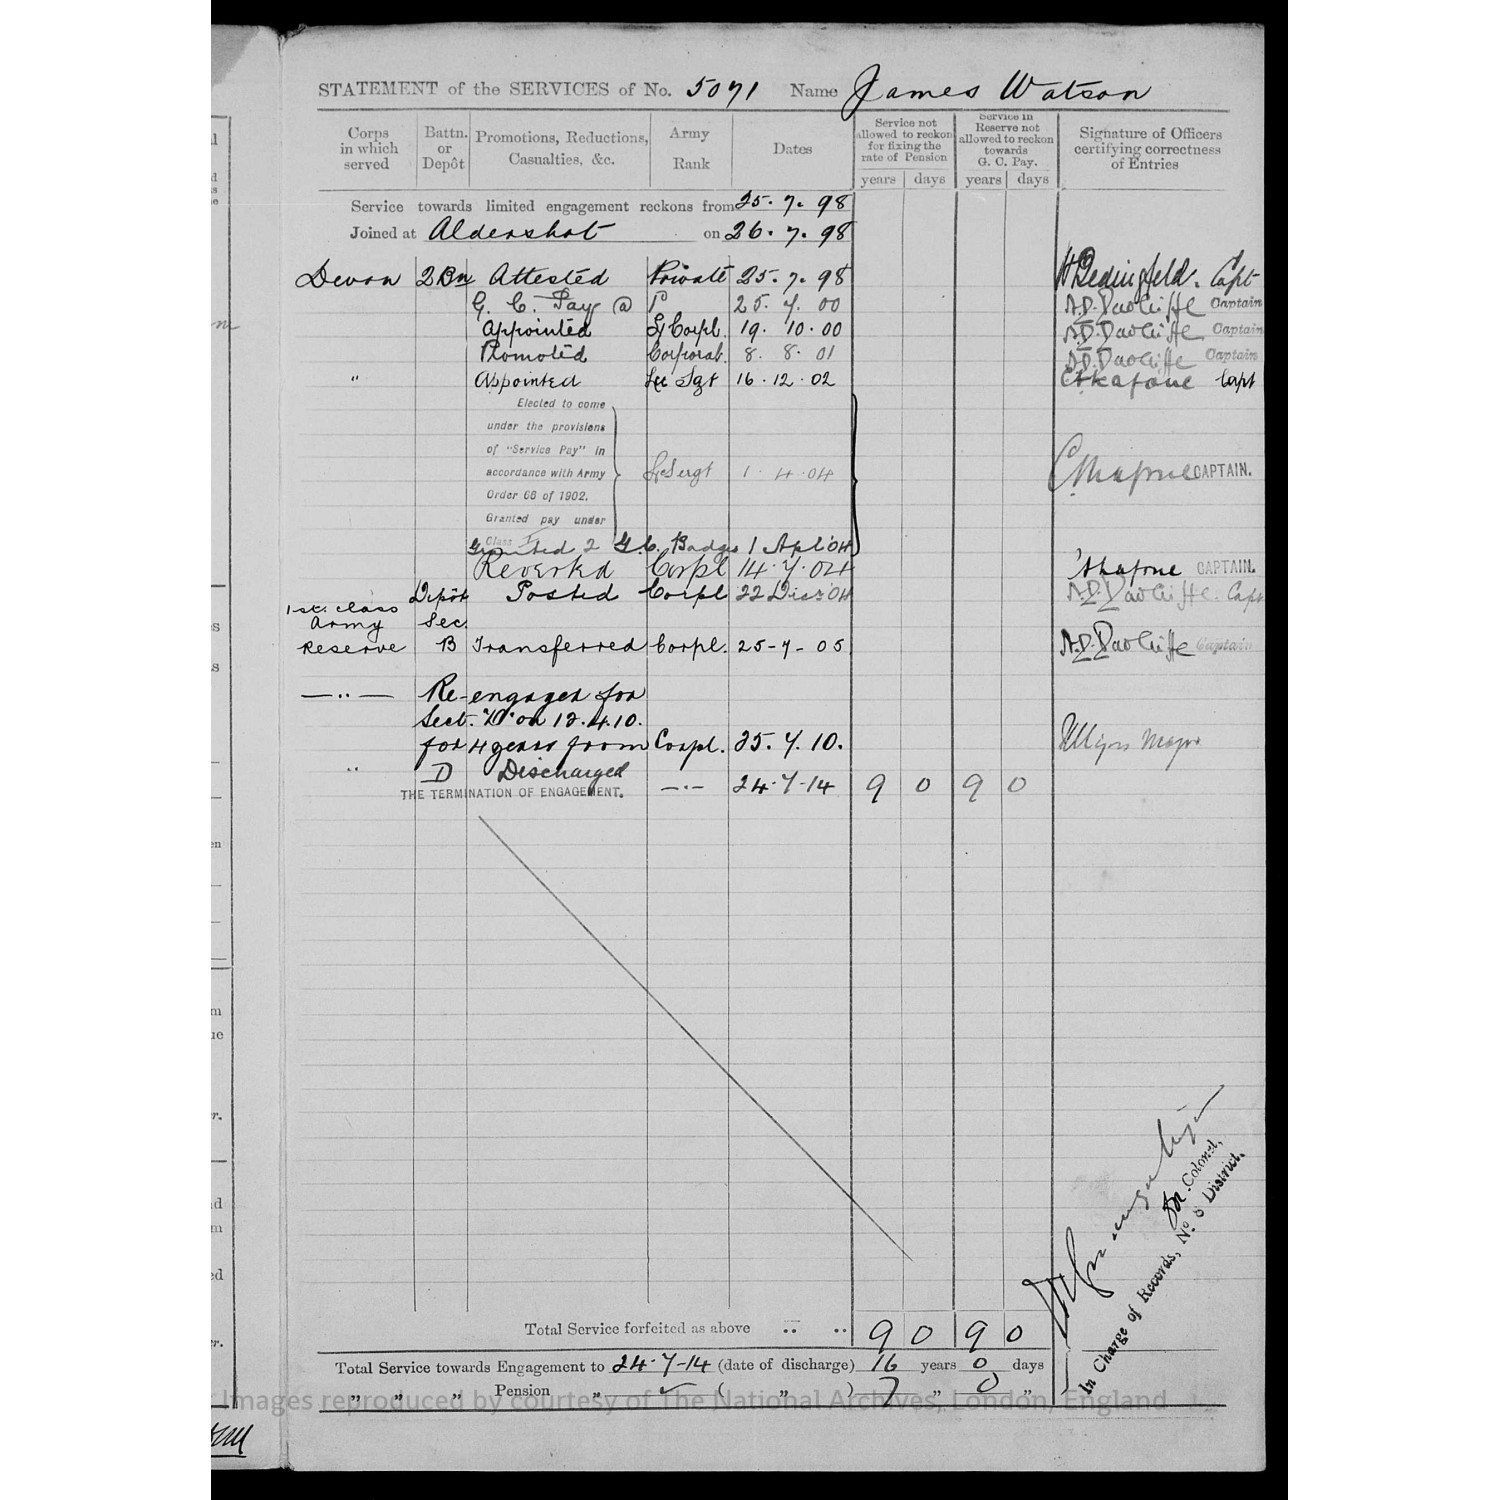 STATEMENT of the SERVICES of No. 5071 Name James Watson
Corps in which served
Battn. or Depôt
Promotions, Reductions, Casualties, &c.
Army Rank
Dates
Service not allowed to reckon for fixing the rate of Pension
Service in Reserve not allowed to reckon towards G. C. Pay.
Signature of Officers certifying correctness of Entries
years days years days
Service towards limited engagement reckons from 25.7.98
Joined at Aldershot on 26.7.98
Devon 2Bn Attested Private 25.7.98 Capt
G. C. Pay @ 25.7.00 A.D. Captain
Appointed L/Corpl. 19.10.00 A.D. Captain
Promoted Corporal 8.8.01 A.D. Captain
" Appointed Sgt 16.12.02 Capt
Elected to come
under the provisions
of "Service Pay" in
accordance with Army L/Sergt 1.4.04 CAPTAIN.
Order 66 of 1902.
Granted pay under
Class I
Granted 2 G.C. Badges 1 Apl '04
Reverted Corpl 14.7.04 CAPTAIN.
Depôt Posted Corpl 22 Dec '04 A.D. Capt
1st. class
Army Sec.
Reserve B Transferred Corpl. 25-7-05 A.D. Captain
—"— Re-engaged for
Sect. D on 12.4.10.
for 4 years from Corpl. 25.7.10. Major
" D Discharged
THE TERMINATION OF ENGAGEMENT. —"— 24-7-14 9 0 9 0
Colonel,
In Charge of Records, No. 8 District.
Total Service forfeited as above .. .. 9 0 9 0
Total Service towards Engagement to 24-7-14 (date of discharge) 16 years 0 days
" " " Pension " ( " ) 7 " 0 "
Images reproduced by courtesy of The National Archives, London, England